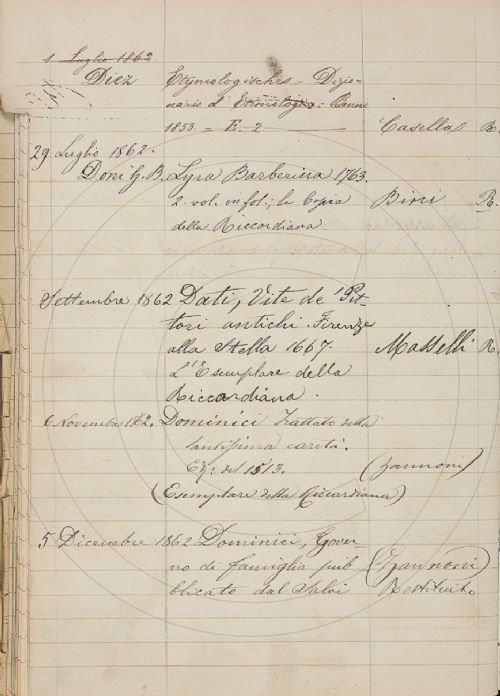 1 Luglio 1862.
Diez Etymologisches - Dizio-
nario d' Etimologia: Bonn
1853. - E. 2 Casella R.
29 Luglio 1862.
Doni G. B. Lyra Barberina 1763.
2 vol. in fol.; la Copia Bini R.
della Riccardiana.
Settembre 1862 Dati, Vite de' Pit-
tori antichi Firenze
alla Stella 1667. Masselli R.
L'Esemplare della
Riccardiana.
6 Novembre 1862. Dominici Trattato della
santissima carità.
del 1513. (Zannoni)
(Esemplare della Riccardiana)
5 Dicembre 1862 Dominici, Gover-
no di famiglia pub (Zannoni)
blicato dal Salvi Restituito